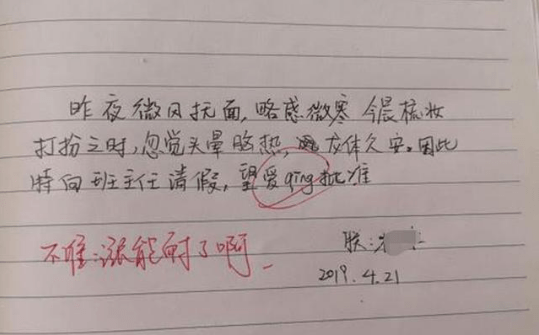 昨夜微风抚面,略感微寒 今晨梳妆
打扮之时,忽觉头晕脑热, 龙体欠安。因此
特向班主任请假,望爱qīng批准
朕:
不准:涨能耐了啊
2019.4.21